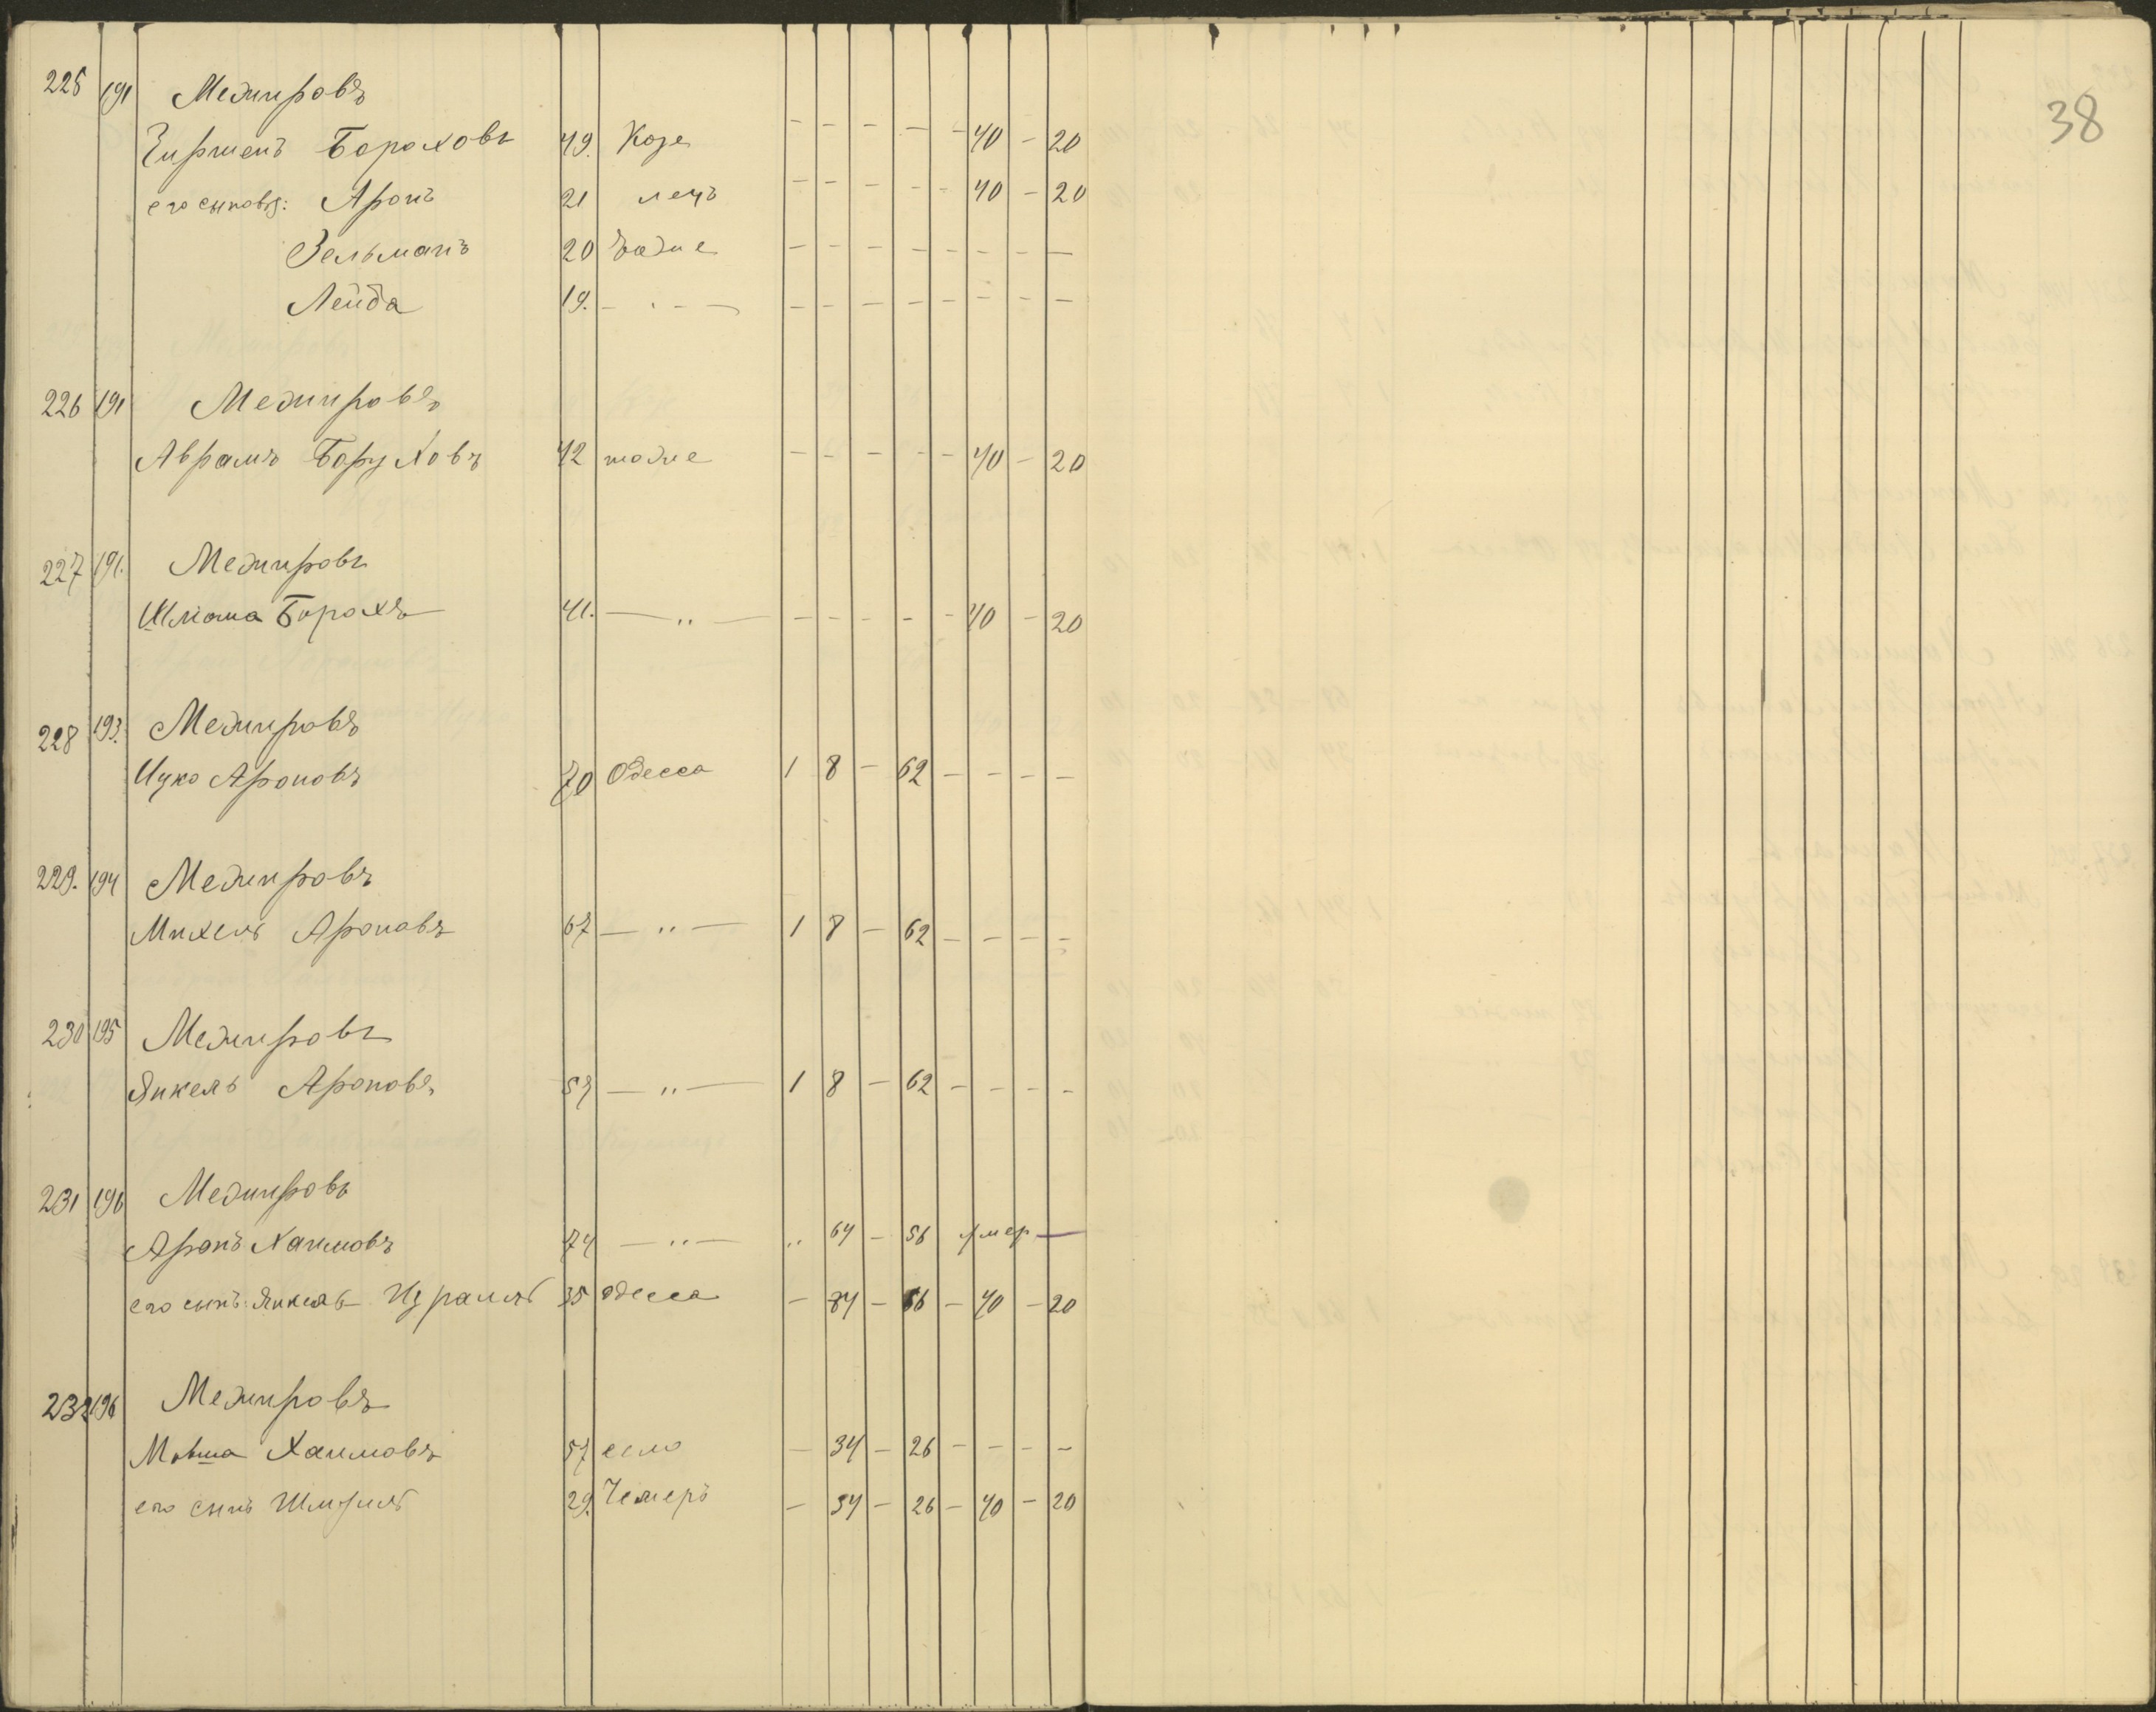 38
225 191 Межировъ
Гиршенъ Бороховъ 49. Козе - - - - - 40 - 20
его сыновья: Аронъ 21 лецъ - - - - - 40 - 20
Зельманъ 20 тоже - - - - - - - -
Лейба 19. - - - - - - - - -
226 191 Межировъ
Аврамъ Боруховъ 42 тоже - - - - - 40 - 20
227 191. Межировъ
Шлома Борохъ 41. — " — - - - - - 40 - 20
228 193. Межировъ
Ицко Ароновъ 70 Одесса 1 8 - 62 - - - -
229. 194 Межировъ
Михель Ароновъ 67 — " — 1 8 - 62 - - - -
230 195 Межировъ
Янкель Ароновъ 57 — " — 1 8 - 62 - - - -
231 196 Межировъ
Аронъ Хаимовъ 74 — " — " 64 - 56 умер —
его сынъ: Янкель Израиль 35 Одесса - 84 - 56 - 40 - 20
232 196 Межировъ
Мовша Хаимовъ 57 село - 34 - 26 - - - -
его сынъ Шмуиль 29. Чемеръ - 34 - 26 - 40 - 20